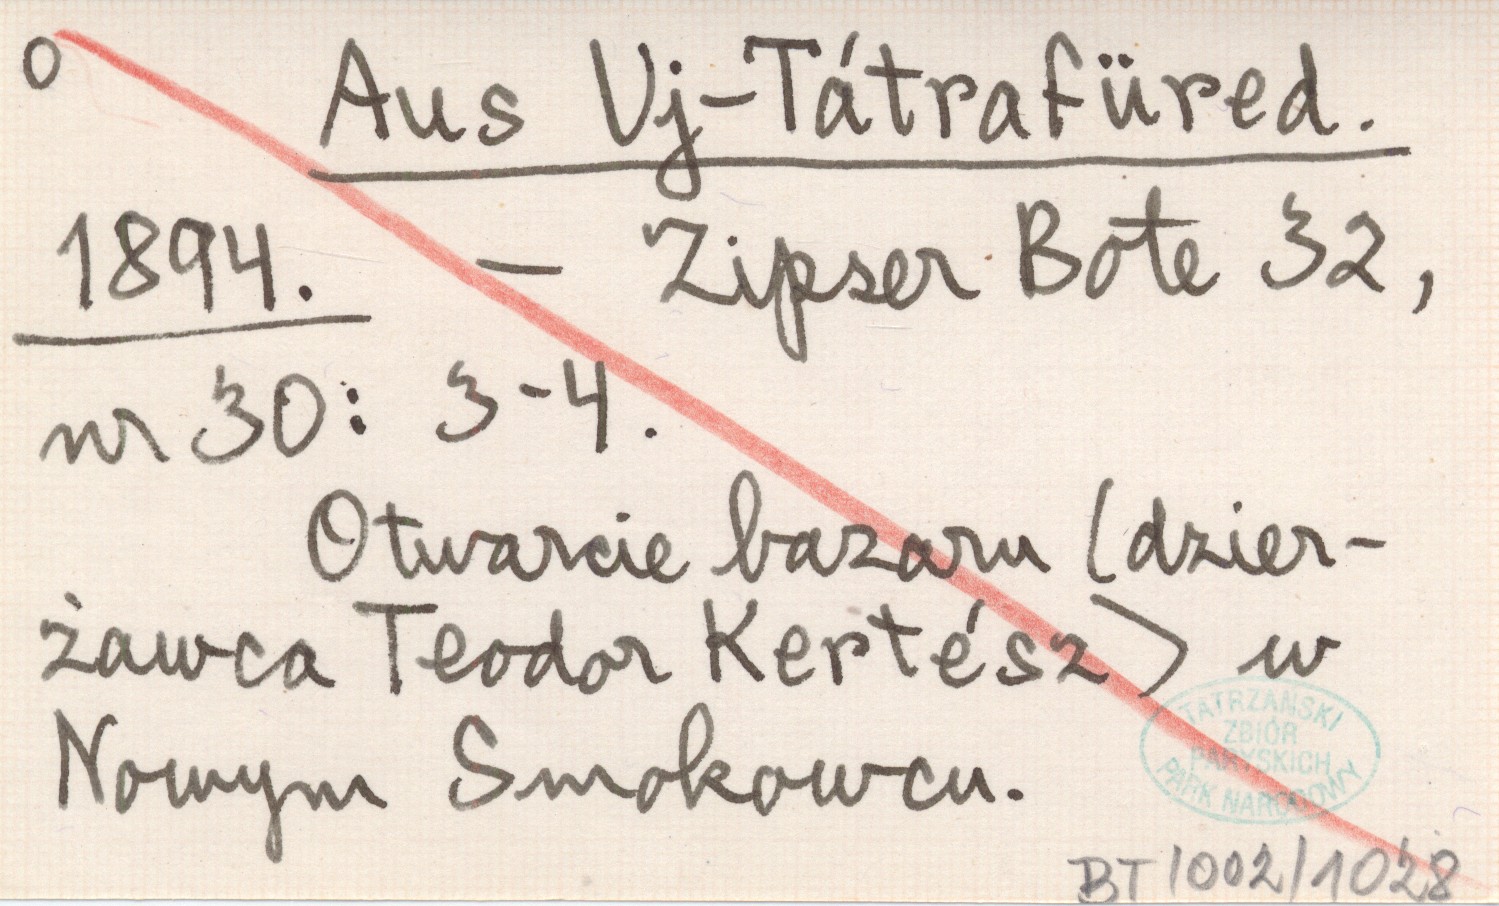 O Aus Uj-Tátrafüred.
1894. — Zipser Bote 32,
nr 30: 3-4.
Otwarcie bazaru (dzier-
żawca Teodor Kertész) w
Nowym Smokowcu.
TATRZAŃSKI
ZBIÓR
PARYSKICH
PARK NARODOWY
BT 1002/1028